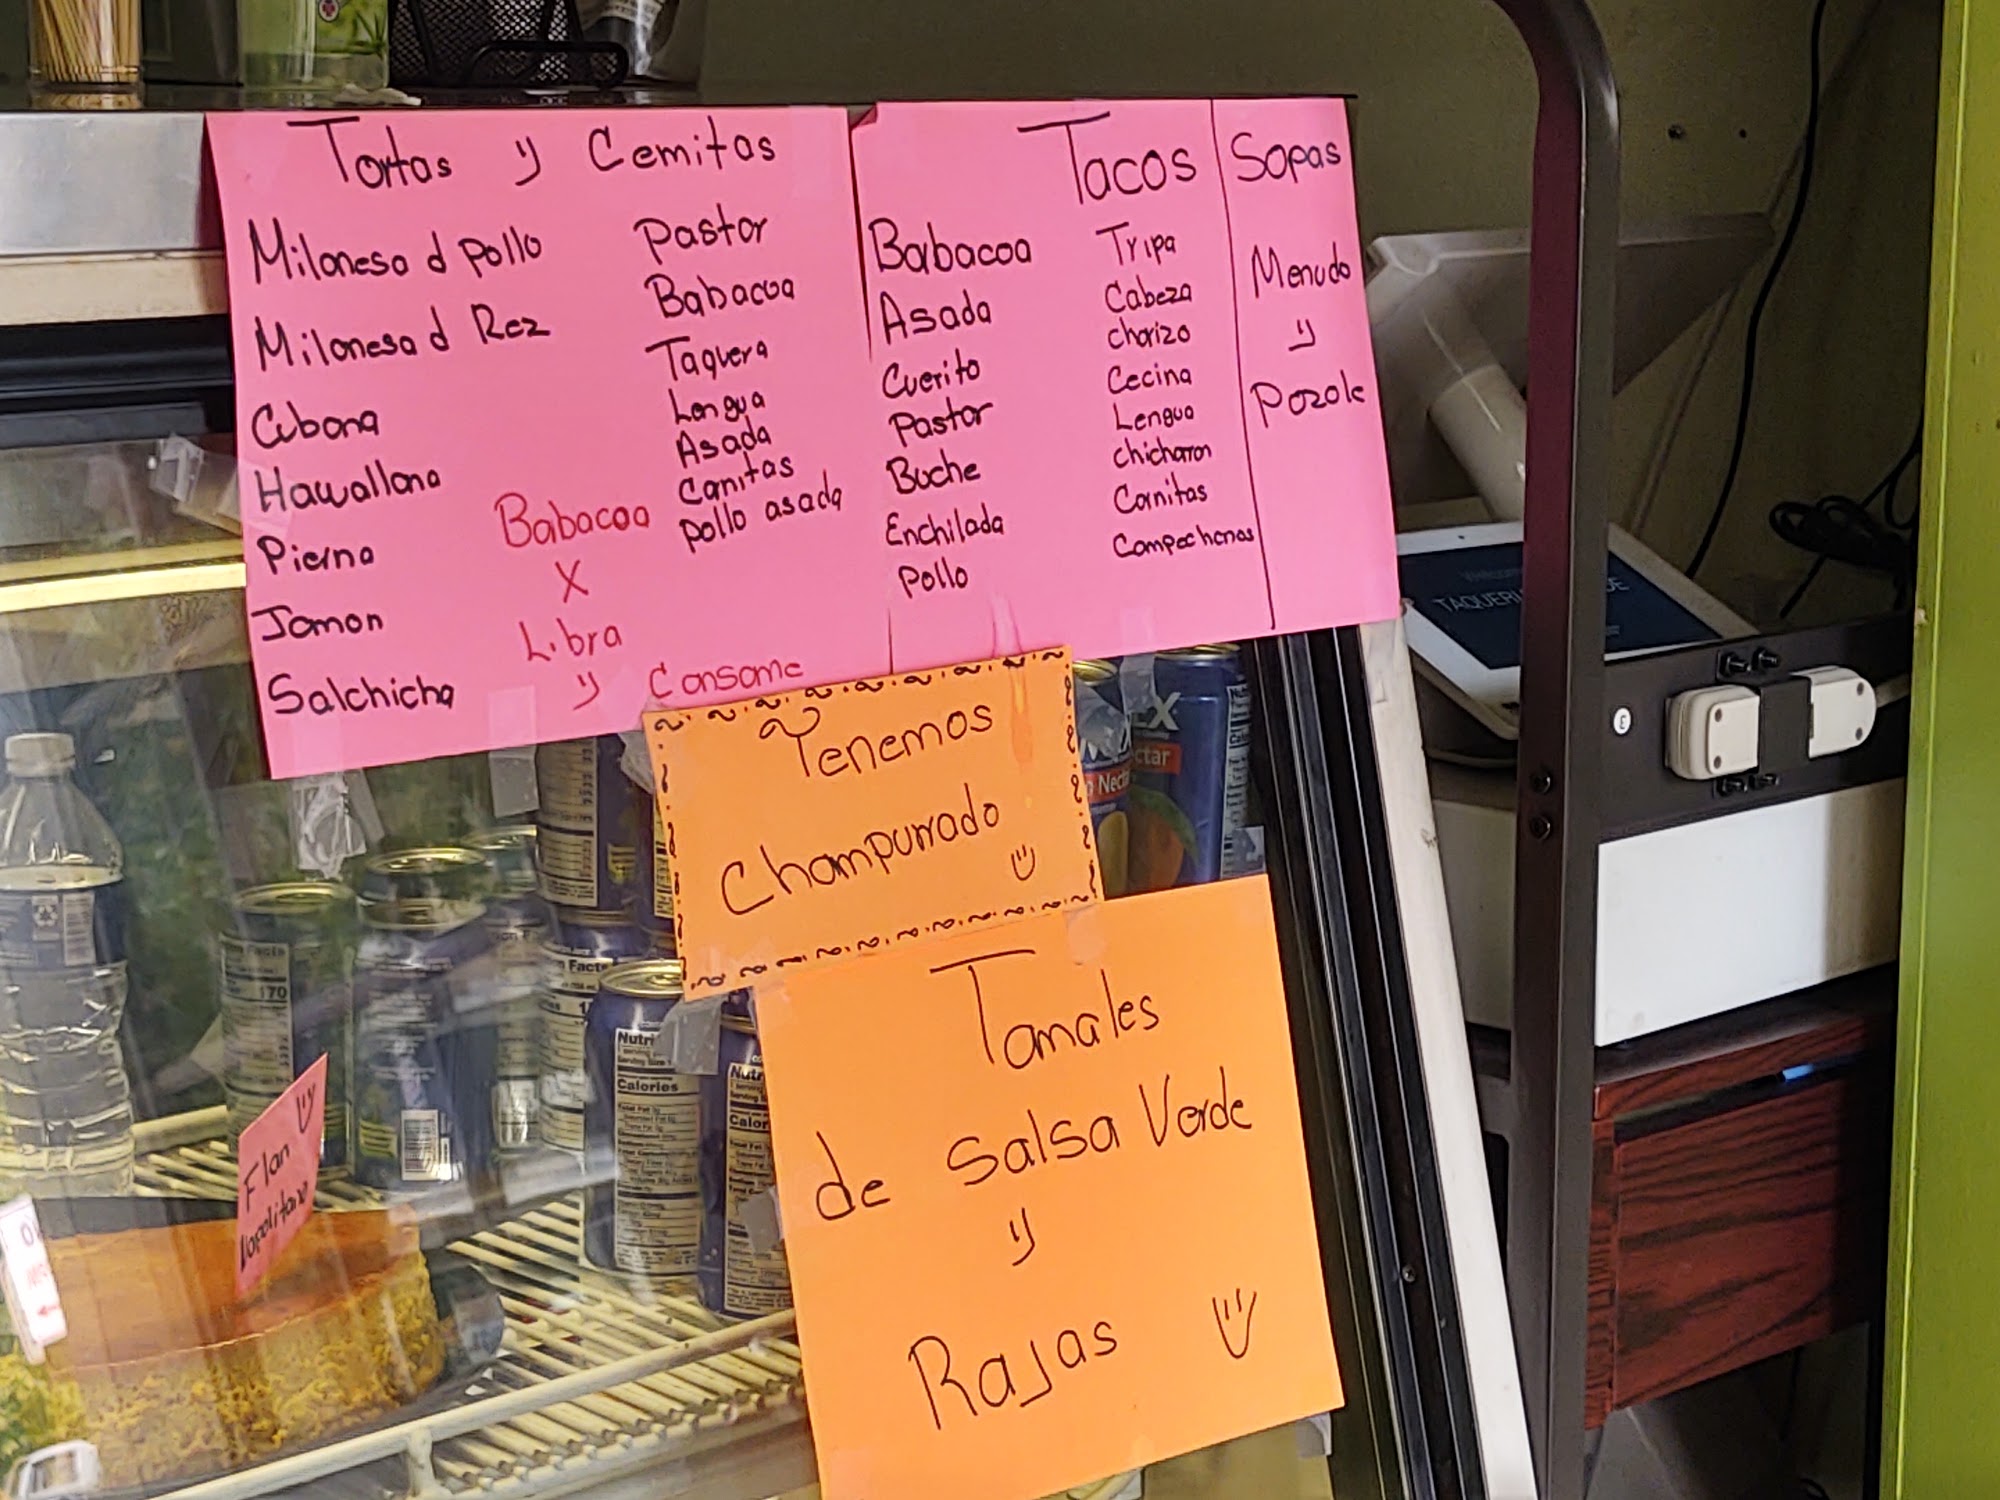 Tortas y Cemitas
Milanesa d pollo
Milanesa d Rez
Cubana
Hawallana
Pierna
Jamon
Salchicha
Pastor
Babacoa
Taquera
Lengua
Asada
Canitas
pollo asada
Babacoa
X
Libra
y Consome
Tacos
Babacoa
Asada
Cuerito
Pastor
Buche
Enchilada
Pollo
Tripa
Cabeza
chorizo
Cecina
Lengua
chicharon
Carnitas
Campechanas
Sopas
Menudo
y
Pozole
Tenemos
Champurrado
Tamales
de Salsa Verde
y
Rajas
Flan
Napolitano
Nutri
Calories
170